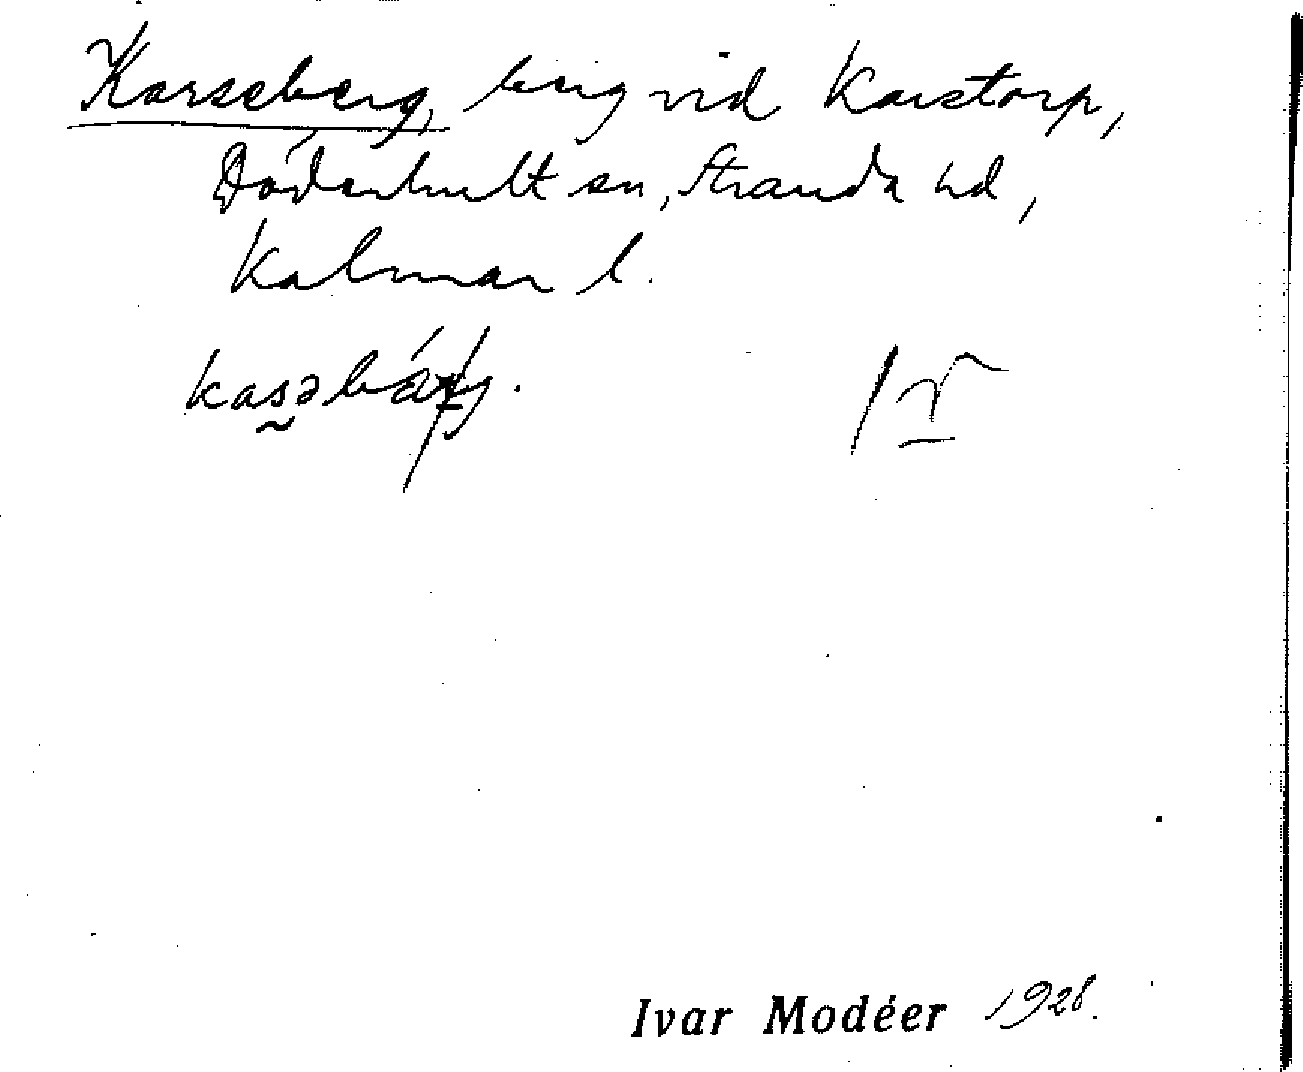 Karseberg, berg vid Karstorp,
Döderhult sn, Stranda hd,
Kalmar l.
Ivar Modéer 1928.